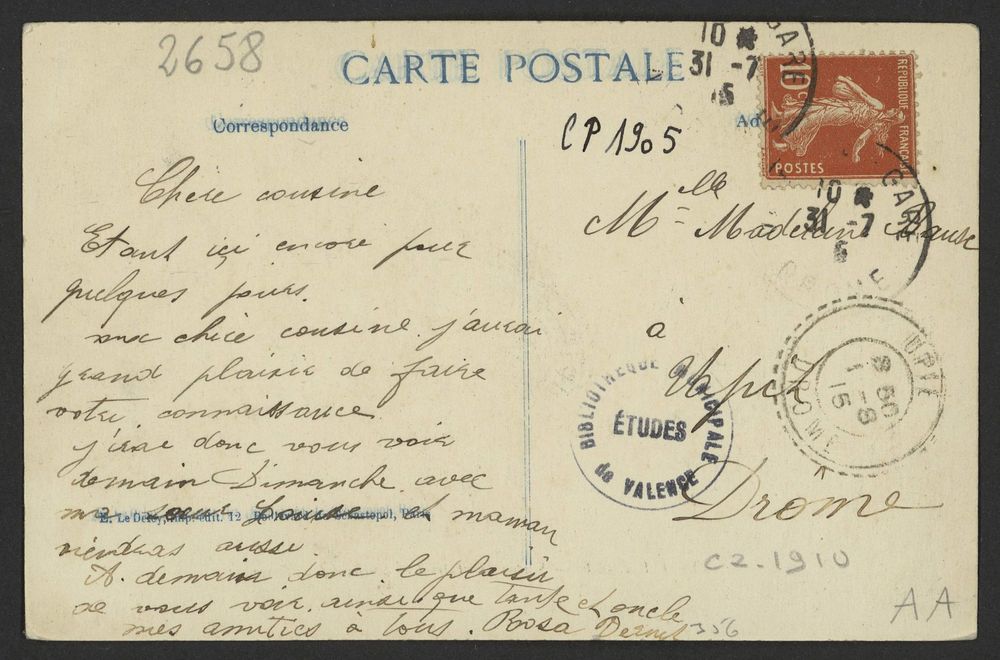 2658
CARTE POSTALE
Correspondance
CP 1905
Ad
RÉPUBLIQUE FRANÇAISE
10 c
POSTES
10
31 -7
15
GARE
10
31 -7
GARE
Chère cousine
Etant ici encore pour
quelques jours.
ma chère cousine j'aurai
grand plaisir de faire
votre connaissance
j'irai donc vous voir
demain Dimanche avec
ma soeur Louise et maman
viendras aussi
A demain donc le plaisir
de vous voir ainsi que tante et oncle
mes amitiés à tous. Rosa
E. Le Deley, imp. édit. 12 Boulevard de Sébastopol, Paris
Mlle Madeleine
à
Upie
Drome
UPIE
8 50
1 -8
15
DROME
BIBLIOTHÈQUE MUNICIPALE
ÉTUDES
de VALENCE
CZ.1910
356
AA